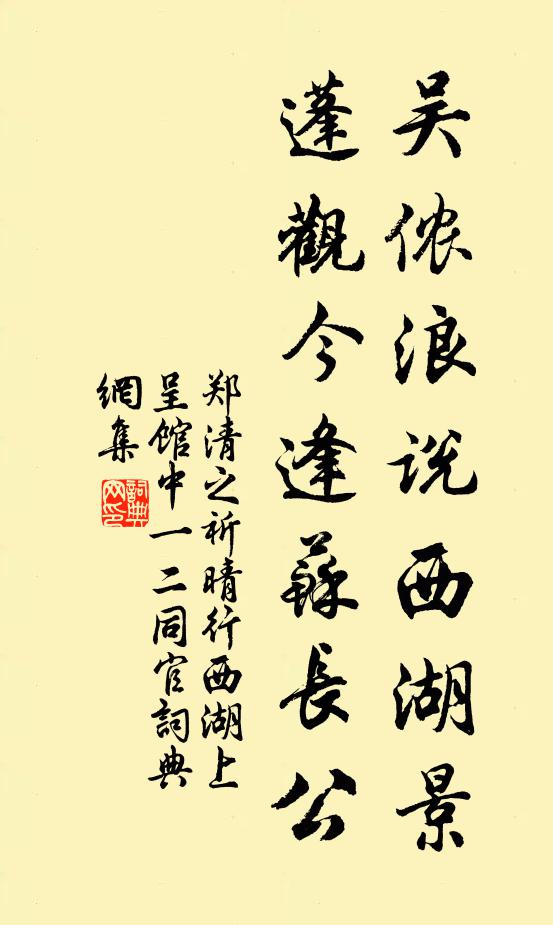 吴侬浪说西湖景
蓬觀今逢蘇長公
郑清之祈晴行西湖上
呈馆中一二同官詞典
網集
詞典
网印